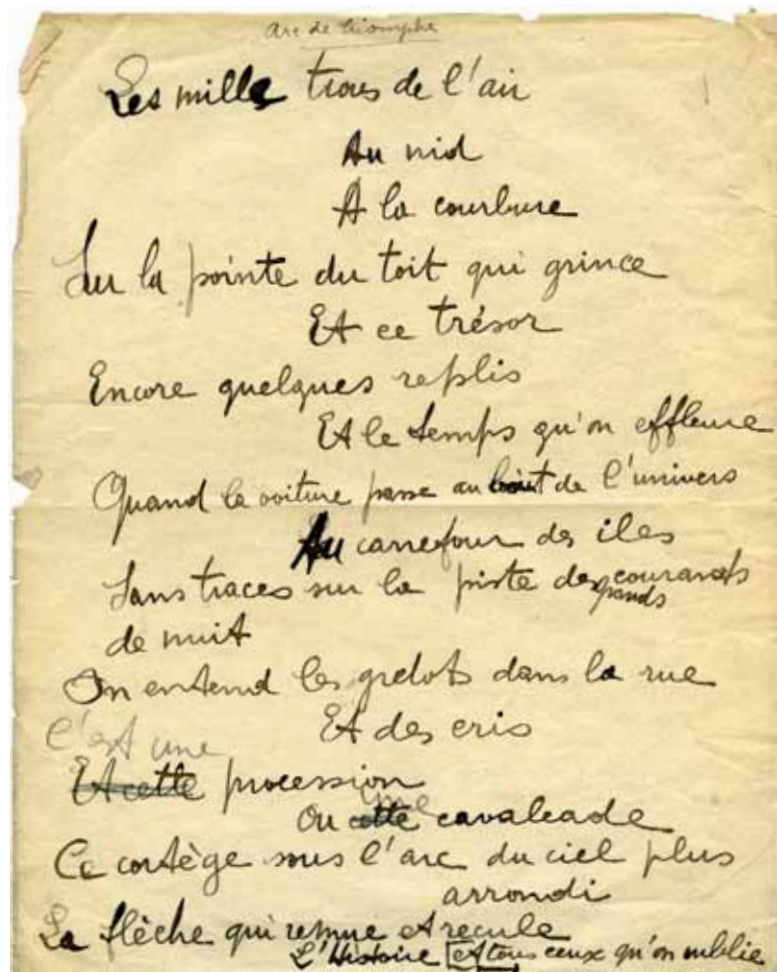 Arc de triomphe
Les mille trous de l'air
Au nid
A la courbure
Sur la pointe du toit qui grince
Et ce trésor
Encore quelques replis
Et le temps qu'on effleure
Quand la voiture passe au bout de l'univers
Au carrefour des iles
Sans traces sur la piste des courants
grands
de nuit
On entend les grelots dans la rue
Et des cris
C'est une
Et cette procession
une
Ou cette cavalcade
Ce cortège sous l'arc du ciel plus
arrondi
La flèche qui remue et recule
L'Histoire [et tous ceux qu'on oublie